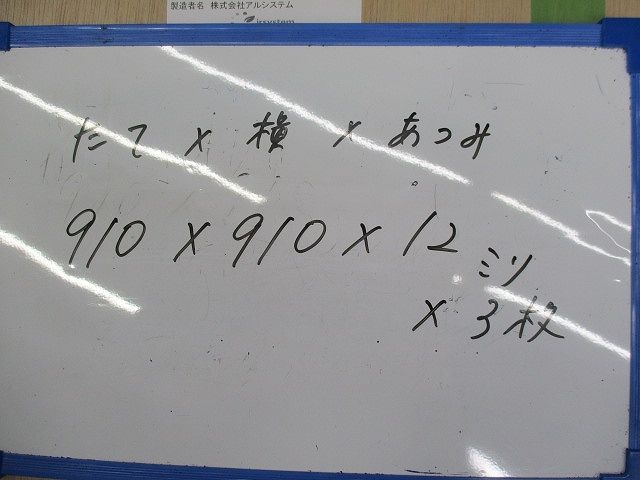 製造者名 株式会社アルシステム
irsystem
たて × 横 × あつみ
910 × 910 × 12 ミリ
× 3枚